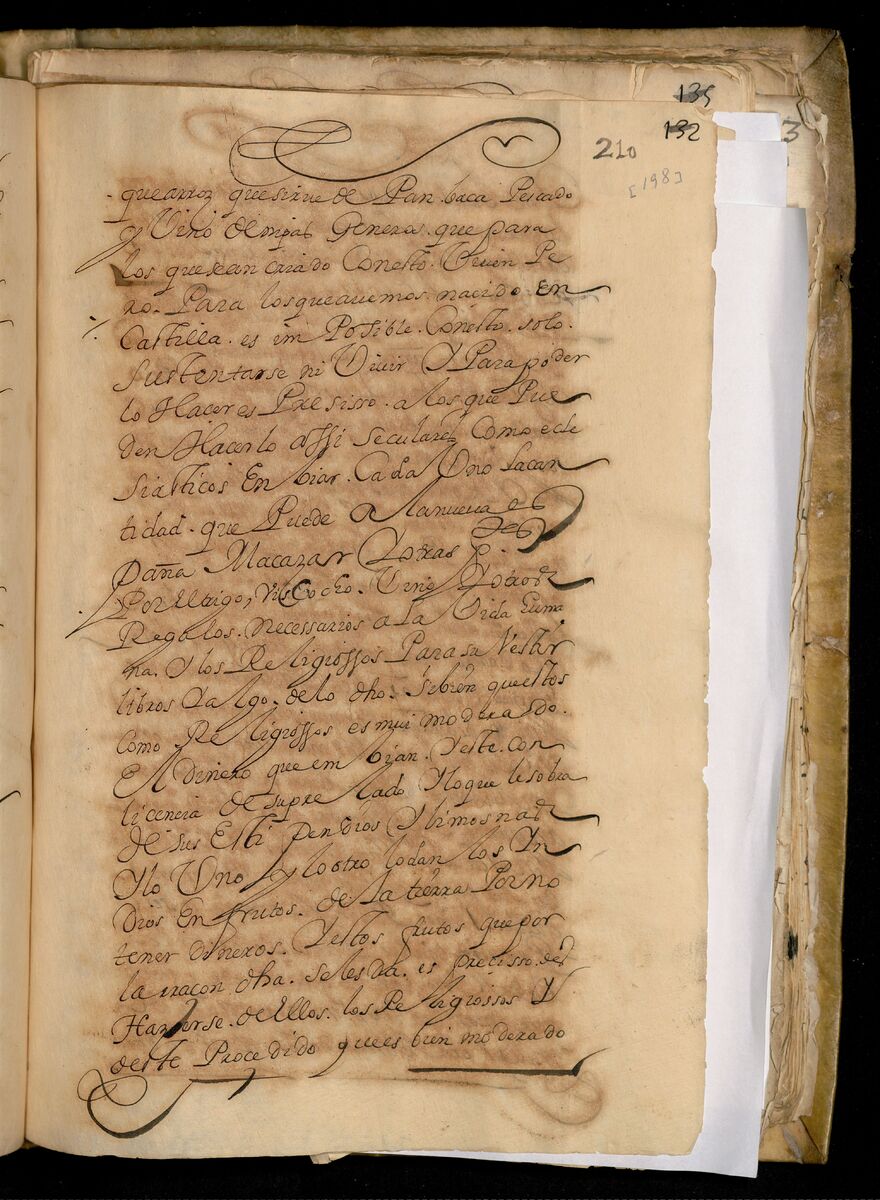 135
132
210
[198]
3
que arroz que sirve de Pan. baca Pescado
y Vino de nipas Generos. que para
los que sean criado Con esto. Viven Pe
ro. Para los que avemos nacido En
Castilla. es im Posible. Con esto. solo.
Sustentarse ni Vivir Y Para poder
lo Hacer es Presisso. a los que Pue
den Hacerlo assi Seculares Como ecle
siasticos Enbiar. Cada Uno la can
tidad. que Puede A la nueva es
paña Macazar Y otras Ps.
Por Utrigo, viscocho. Vino Y otros
Regalos. necessarios a La Vida Huma
na. Y los Religiossos Para su Vestir
libros Y algo. de lo dho. si bien que estos
como Religiossos es mui moderado.
El dinero que em bian. Y este. con
licencia de su prelado Y lo que le sobra
de sus Esti pendios Y limosnas
Y lo Uno y lo otro lo dan los Yn
dios En frutos. de la tierra Por no
tener dineros. Y estos frutos que por
la rracon dha. se les da. es presisso. des
Hazerse. de Ellos. los Religiossos Y
deste Procedido que es bien moderado